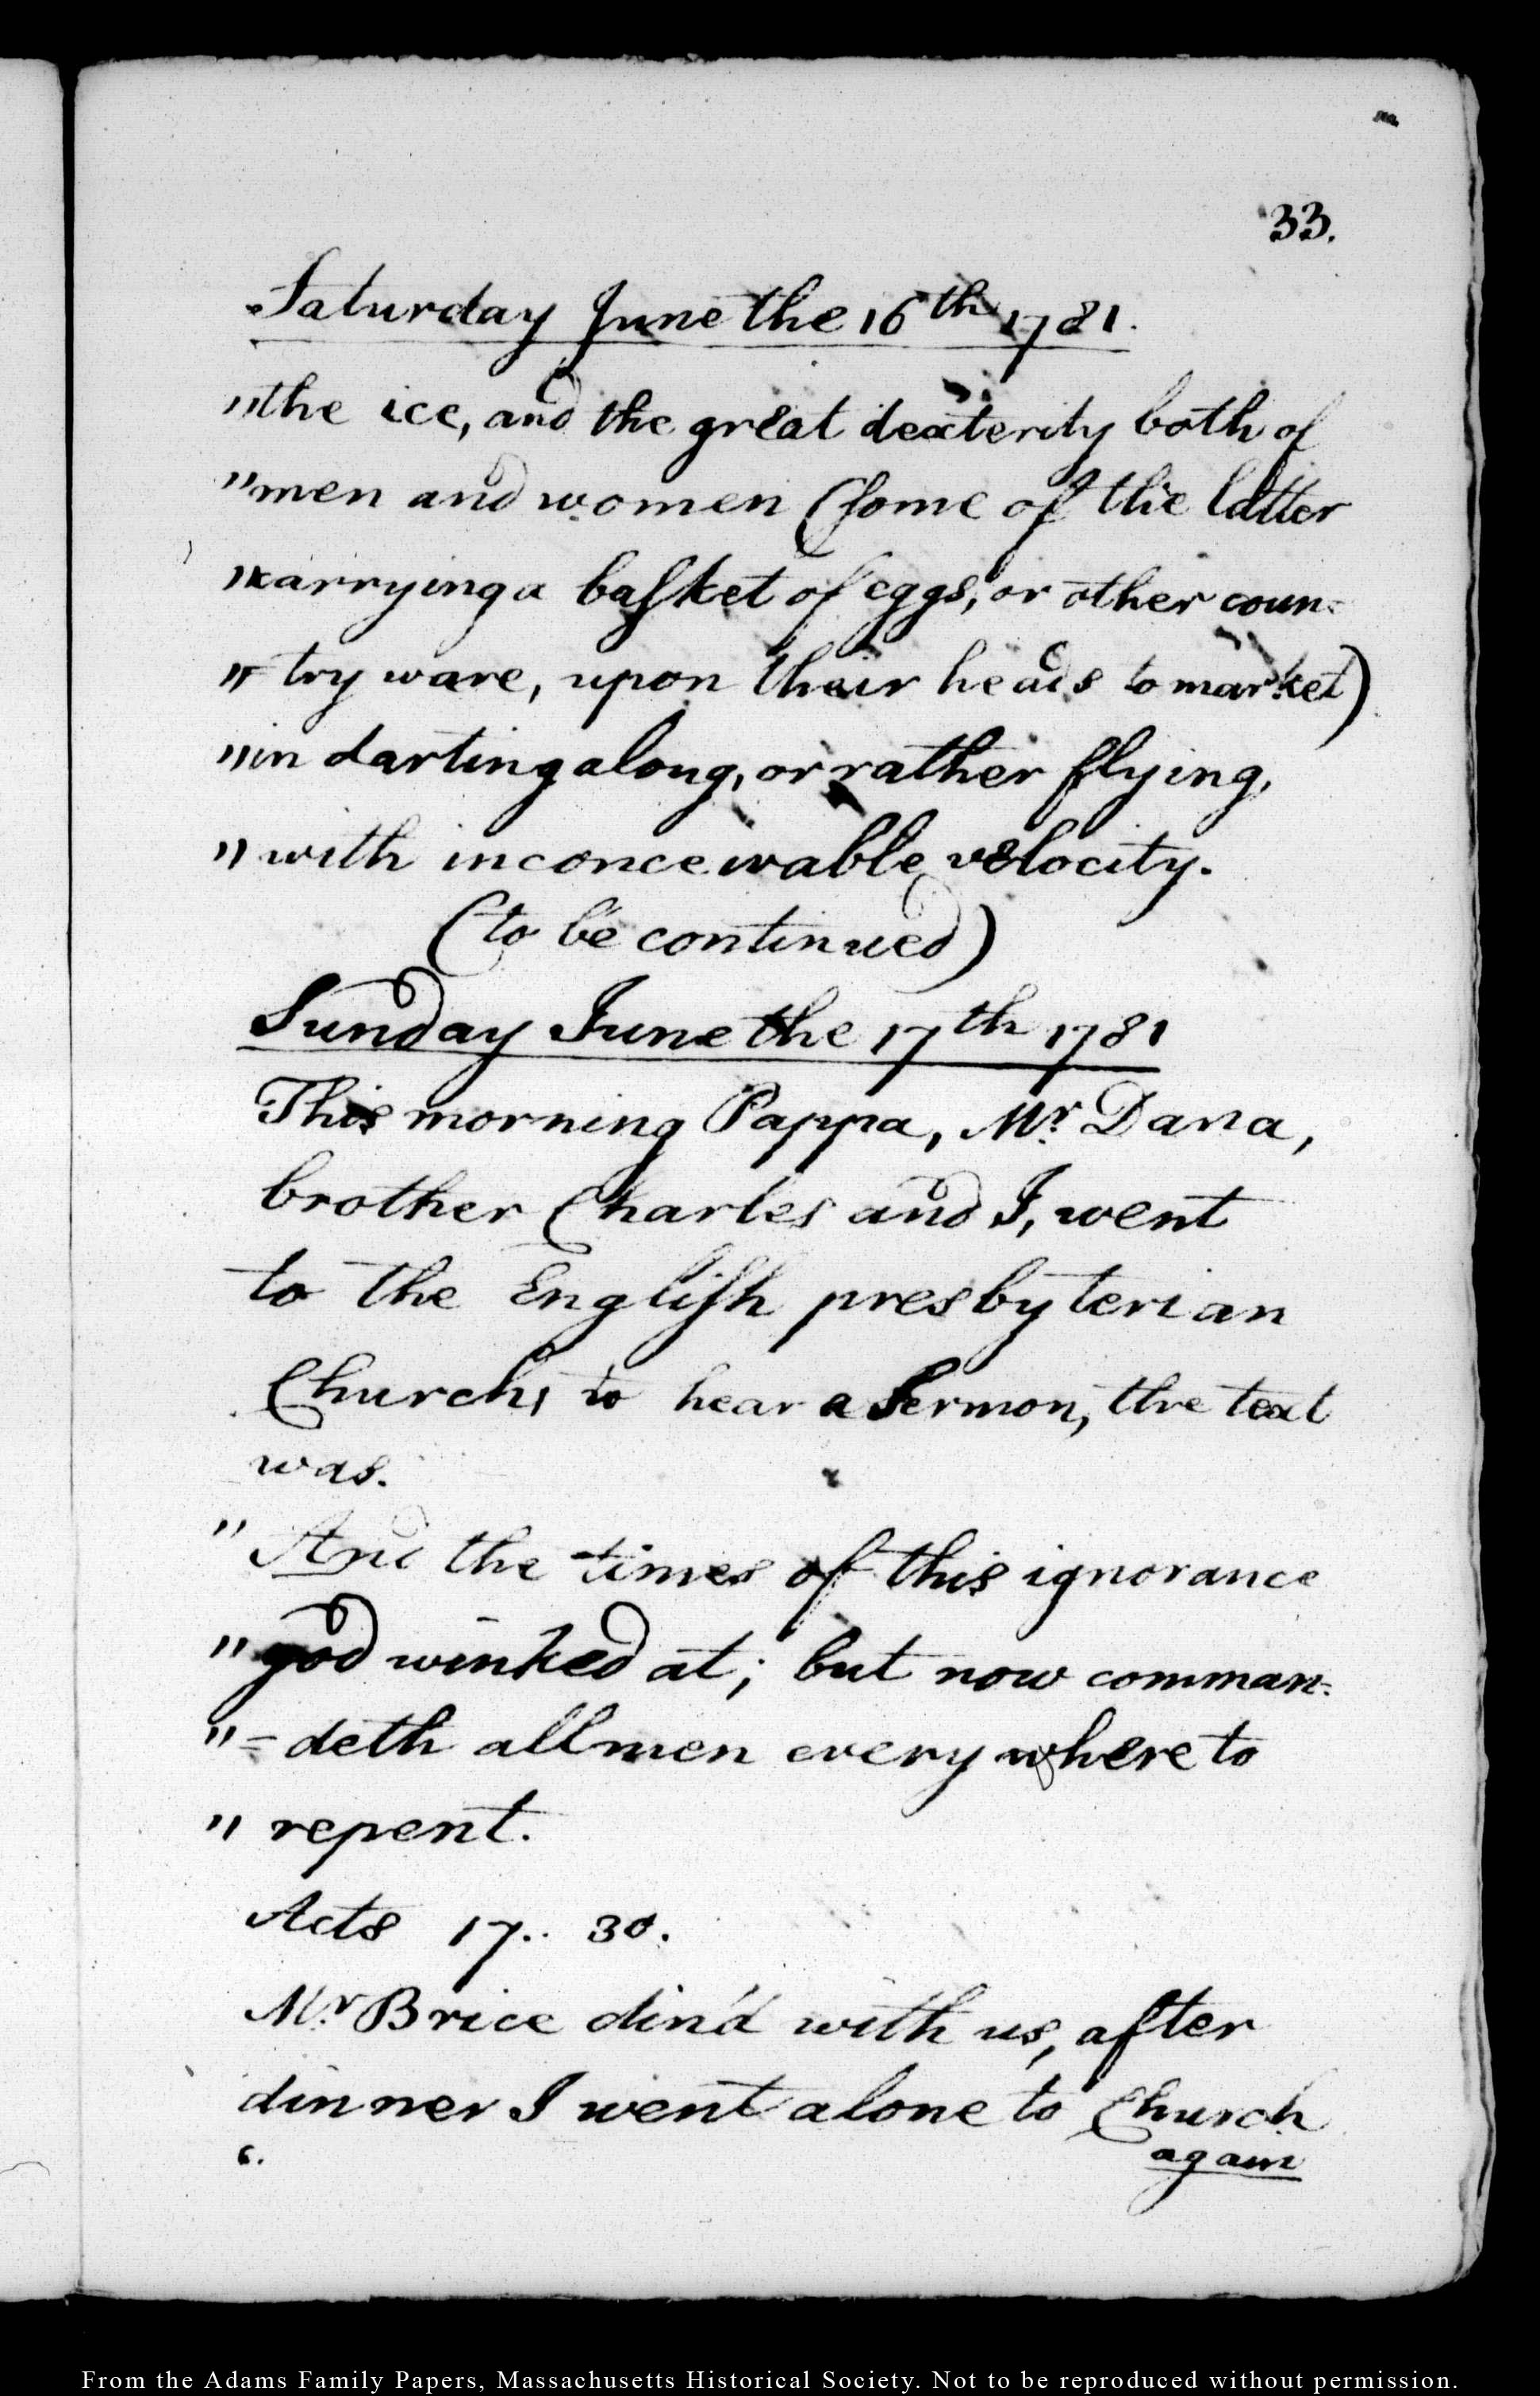 33.
Saturday June the 16th 1781.
"the ice, and the great dexterity both of
"men and women (some of the latter
"carrying a basket of eggs, or other coun=
"=try ware, upon their heads to market)
"in darting along, or rather flying,
"with inconceivable velocity.
(to be continued)
Sunday June the 17th 1781
This morning Pappa, Mr. Dana,
brother Charles and I, went
to the English presbyterian
Church, to hear a Sermon, the text
was.
"And the times of this ignorance
"god winked at; but now comman=
"=deth all men every where to
"repent.
Acts 17.. 30.
Mr. Brice din'd with us, after
dinner I went alone to Church
6. again
From the Adams Family Papers, Massachusetts Historical Society. Not to be reproduced without permission.